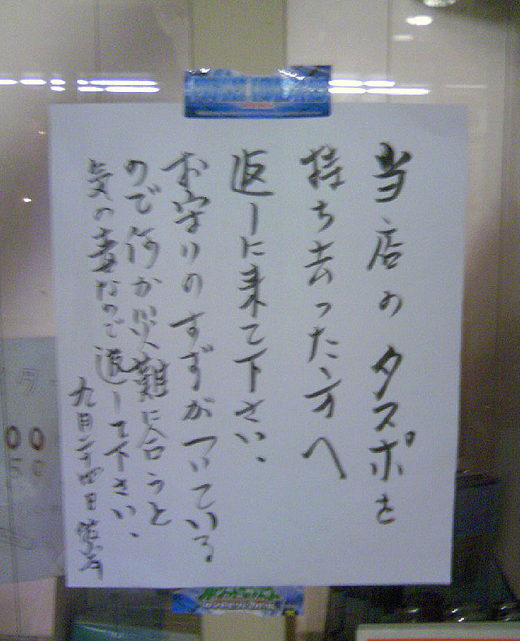 当店のタスポを
持ち去った方へ
返しに来て下さい、
お守りのすずがついている
ので何か災難に合うと
気の毒なので返して下さい、
九月二十四日